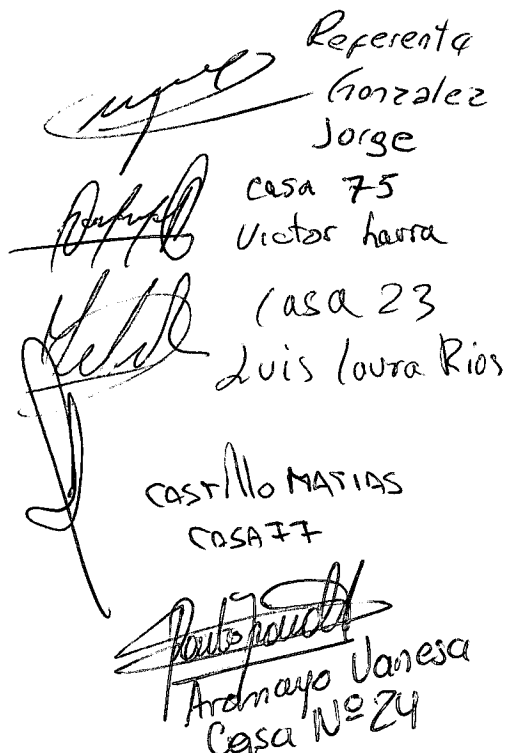 Referente
Gonzalez
Jorge
casa 75
Victor Larra
Casa 23
Luis Loura Rios
CASTillo MATIAS
CASA 77
Aramayo Vanesa
Casa Nº 24